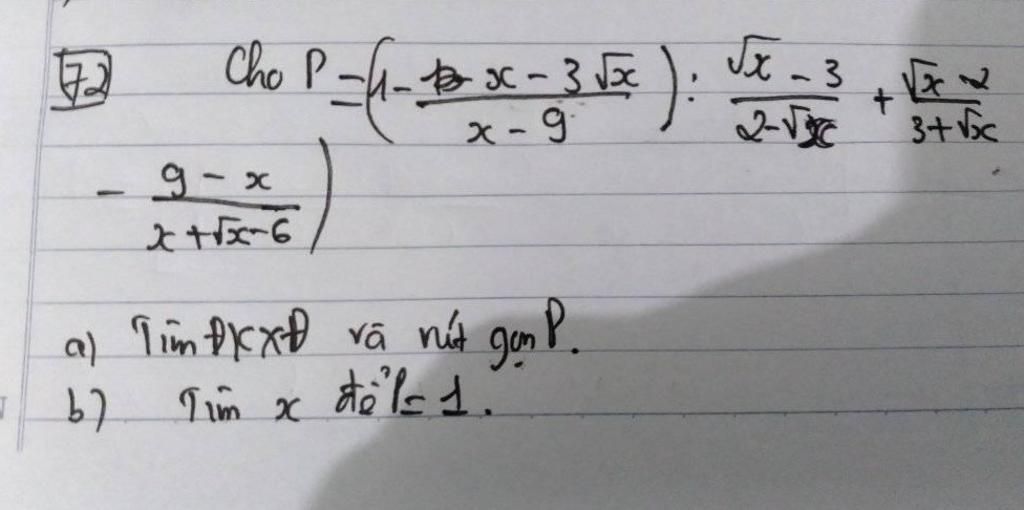 72 Cho P = (1 - \frac{x - 3\sqrt{x}}{x - 9}) : \frac{\sqrt{x} - 3}{2 - \sqrt{x}} + \frac{\sqrt{x} - 2}{3 + \sqrt{x}}
- \frac{9 - x}{x + \sqrt{x} - 6})
a) Tìm ĐKXĐ và rút gọn P.
b) Tìm x để P = 1.